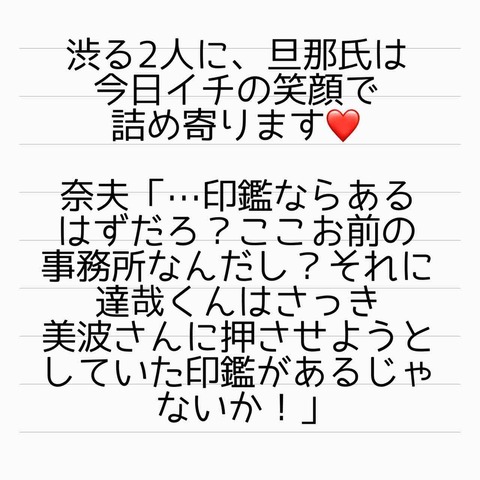 渋る2人に、旦那氏は
今日イチの笑顔で
詰め寄ります❤️
奈夫「…印鑑ならある
はずだろ？ここお前の
事務所なんだし？それに
達哉くんはさっき
美波さんに押させようと
していた印鑑があるじゃ
ないか！」